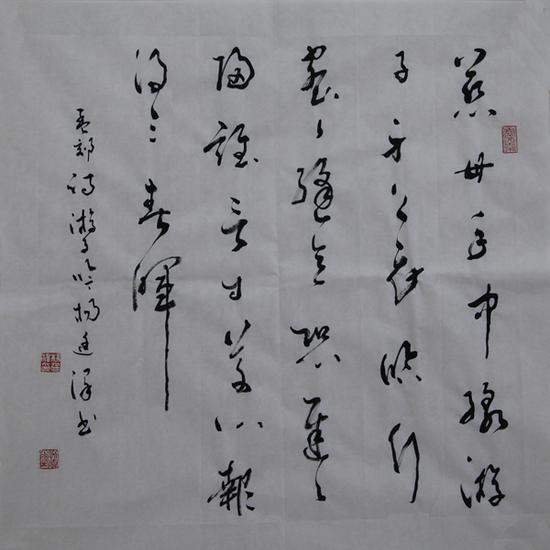 慈母手中線游
子身上衣臨行
密密縫意恐遲遲
歸誰言寸草心報
得三春暉
孟郊詩游子吟楊廷書